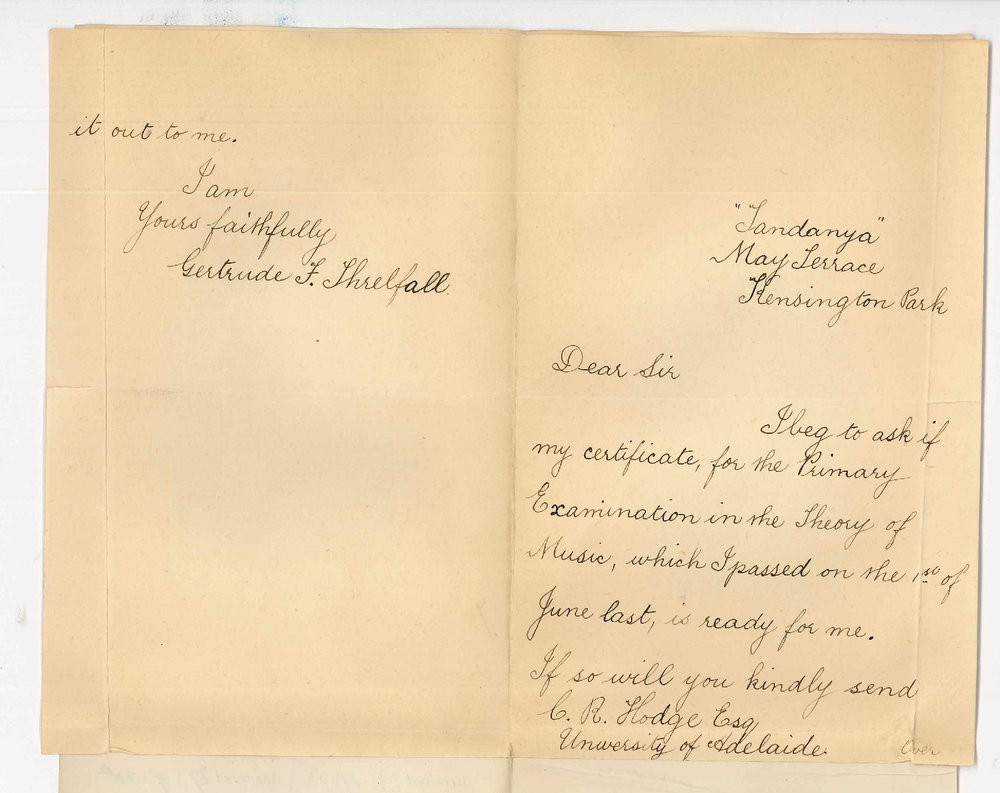 "Tandanya"
May Terrace
Kensington Park
Dear Sir
I beg to ask if
my certificate, for the Primary
Examination in the Theory of
Music, which I passed on the 1st of
June last, is ready for me.
If so will you kindly send
C. R. Hodge Esq
University of Adelaide.
Over
it out to me.
I am
Yours faithfully
Gertrude F. Threlfall.